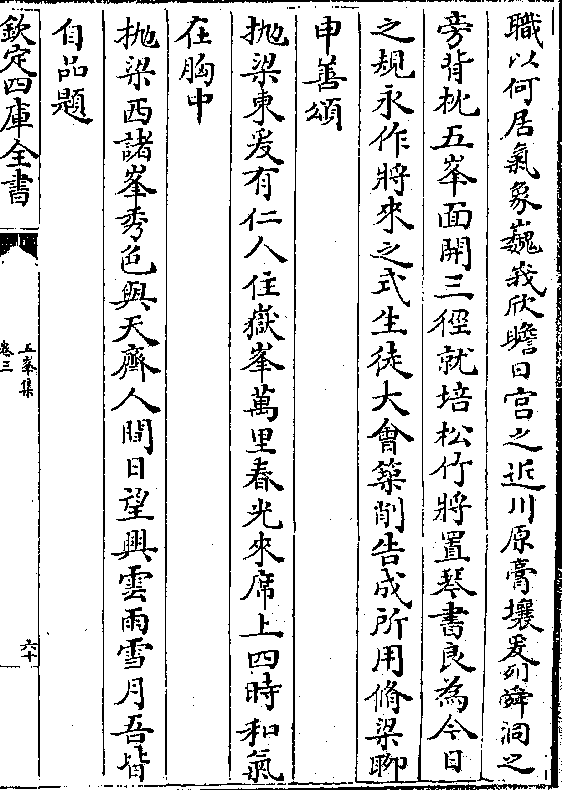 職以何居氣象巍峩欣瞻日宫之近川原膏壤爰列舜洞之
旁背枕五峯面開三徑就培松竹將置琴書良為今日
之規永作將來之式生徒大會築削告成所用脩梁聊
申善頌
抛梁東爰有仁人住嶽峯萬里春光來席上四時和氣
在胸中
抛梁西諸峯秀色與天齊人間日望興雲雨雪月吾皆
自品題
欽定四庫全書
五峯集
卷三
六十